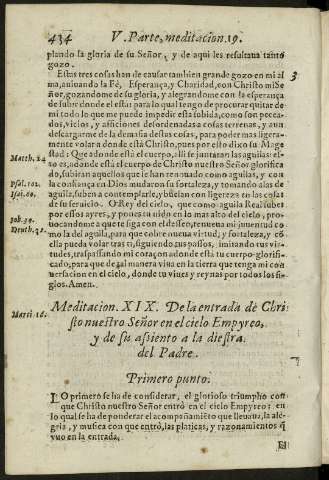 434 V. Parte, meditacion. 19.
plando la gloria de su Señor, y de aqui les resultaua tanto
gozo.
Estas tres cosas han de causar tambien grande gozo en mi al 3
ma, auiuando la Fé, Esperança, y Charidad, con Christo mi Se
ñor, gozandome de su gloria, y alegrandome con la esperança
de subir donde el està: para lo qual tengo de procurar quitar de
mi todo lo que me puede impedir esta subida, como son peca-
dos, vicios, y aficiones desordenadas a cosas terrenas, y aun
descargarme de la demasia destas cosas, para poder mas ligera-
mente volar a donde està Christo, pues por esto dixo su Mage
Matth. 24. stad: Que adonde està el cuerpo, alli se juntaran las aguilas: esto
es, adonde està el cuerpo de Christo nuestro Señor glorifica
do, subiran aquellos que se han renouado como aguilas, y con
Psal. 102. la confiança en Dios mudaron su fortaleza, y tomando alas de
Isai. 40. aguila, suben a contemplarle, y buelan con ligereza en las cosas
de su seruicio. O Rey del cielo, que como aguila Real subes
Iob. 39. por essos ayres, y pones tu nido en lo mas alto del cielo, pro-
Deut. 32. uocandome a que te siga con el desseo, renueua mi juuentud co
mo la del aguila, para que cobre nueua virtud, y fortaleza, y cõ
ella pueda volar tras ti, siguiendo tus passos, imitando tus vir-
tudes, traspassando mi coraçon adonde està tu cuerpo glorifi-
cado, para que de tal manera viua en la tierra que tenga mi con
uersacion en el cielo, donde tu viues y reynas por todos los si-
glos. Amen.
Marci. 16. Meditacion. XIX. De la entrada de Chri-
sto nuestro Señor en el cielo Empyreo,
y de su assiento a la diestra
del Padre.
Primero punto.
LO primero se ha de considerar, el glorioso triumpho con
que Christo nuestro Señor entrò en el cielo Empyreo: en
lo qual se ha de ponderar el acompañamiẽto que lleuaua, la ale-
gria, y musica con que entrò, las platicas, y razonamientos q̃
vuo en la entrada.